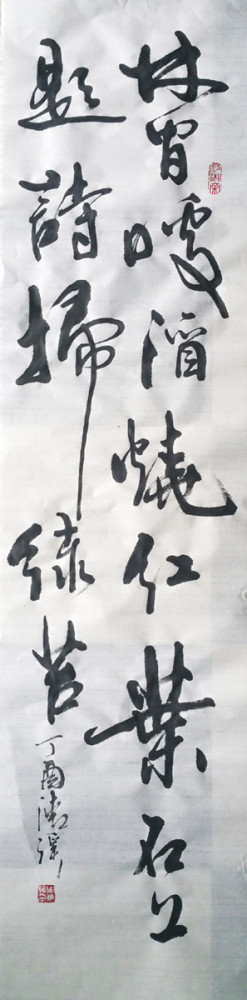 林間暖酒燒紅葉石上
題詩掃綠苔
丁酉